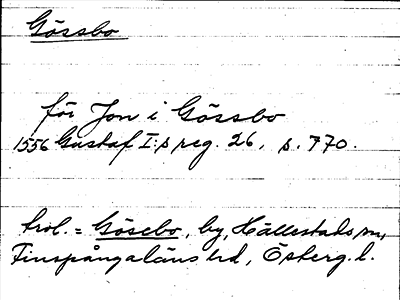 Gössbo
för Jon i Gössbo
1556 Gustaf I:s reg. 26, s. 770.
trol. = Gösebo, by, Hällestads sn,
Finspånga läns hd, Österg. l.